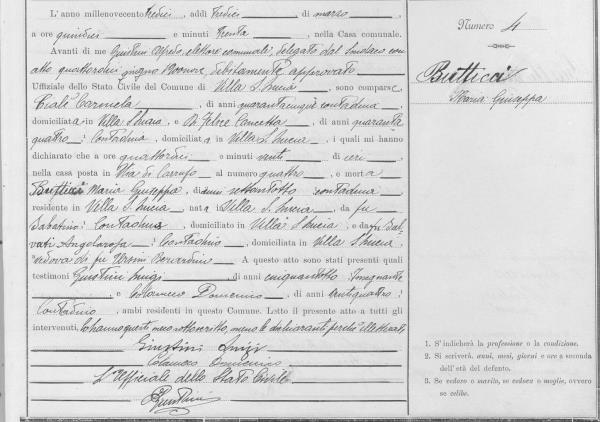 L'anno millenovecento tredici, addì tredici di marzo,
a ore quindici e minuti trenta, nella Casa comunale.
Avanti di me Giustini Alfredo, elettore comunale, delegato del Sindaco con
atto quattordici giugno, debitamente approvato
Uffiziale dello Stato Civile del Comune di Villa S. Lucia, sono comparse
Carmela, di anni quarantacinque contadina,
domiciliata in Villa S. Lucia, e Di Felice Concetta, di anni quaranta
quattro, contadina, domiciliata in Villa S. Lucia, i quali mi hanno
dichiarato che a ore quattordici e minuti venti di ieri,
nella casa posta in Via di Carrufo al numero quattro, è morta
Butticci Maria Giuseppa, di anni settantotto contadina
residente in Villa S. Lucia, nata in Villa S. Lucia, da fu
Sabatino, contadino, domiciliato in Villa S. Lucia, e da fu Sal-
vati Angelarosa, domiciliata in Villa S. Lucia,
vedova di fu Bernardino. A questo atto sono stati presenti quali
testimoni Giustini Luigi di anni cinquantotto Insegnante
, e Colamarco Domenico, di anni
contadino, ambi residenti in questo Comune. Letto il presente atto a tutti gli
intervenuti, lo hanno questi meco sottoscritto, meno le dichiaranti perchè illetterate
Giustini Luigi
Colamarco Domenico
L'Ufficiale dello Stato Civile
AGiustini
Numero 4
Butticci
Maria Giuseppa
1. S'indicherà la professione o la condizione.
2. Si scriverà anni, mesi, giorni e ore a seconda
dell'età del defunto.
3. Se vedovo o marito, se vedova o moglie, ovvero
se celibe.